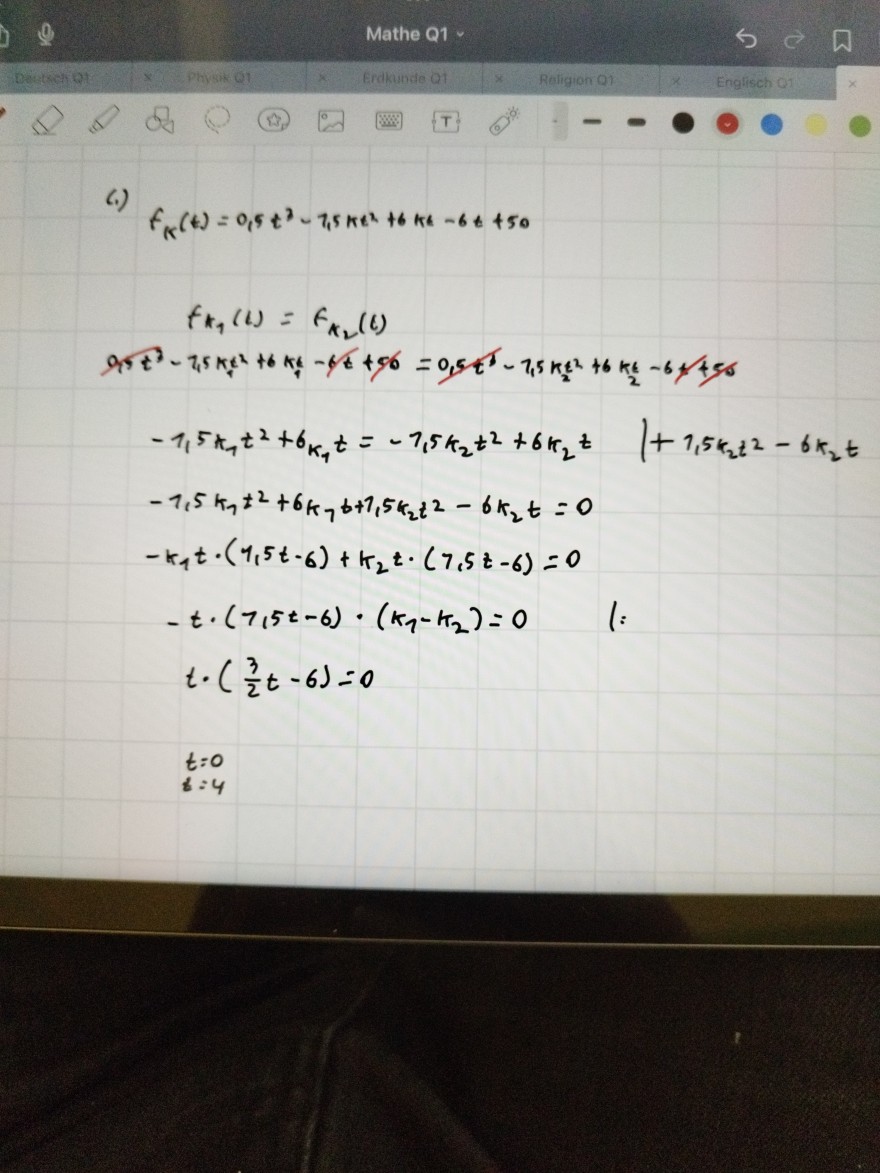 Mathe Q1
Deutsch Q1 Physik Q1 Erdkunde Q1 Religion Q1 Englisch Q1
T
c.)
fₖ(t) = 0,5t³ - 1,5kt² + 6kt - 6t + 50
fₖ₁(t) = fₖ₂(t)
0,5t³ - 1,5k₁t² + 6k₁t - 6t + 50 = 0,5t³ - 1,5k₂t² + 6k₂t - 6t + 50
-1,5k₁t² + 6k₁t = -1,5k₂t² + 6k₂t |+ 1,5k₂t² - 6k₂t
-1,5k₁t² + 6k₁t + 1,5k₂t² - 6k₂t = 0
-k₁t·(1,5t-6) + k₂t·(1,5t-6) = 0
-t·(1,5t-6)·(k₁-k₂) = 0 |:
t·(3/2t - 6) = 0
t=0
t=4